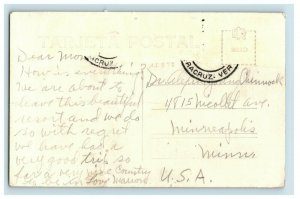 TARJETA POSTAL
Dear Mom
How is everything
We are about to
leave this beautiful
resort and we do
so with regret
we have had a
very good trip so
far a very nice Country
to be in
ACRUZ
RACRUZ, VER
4815 Nicollet ave.
Minneapolis
Minns
U.S.A.